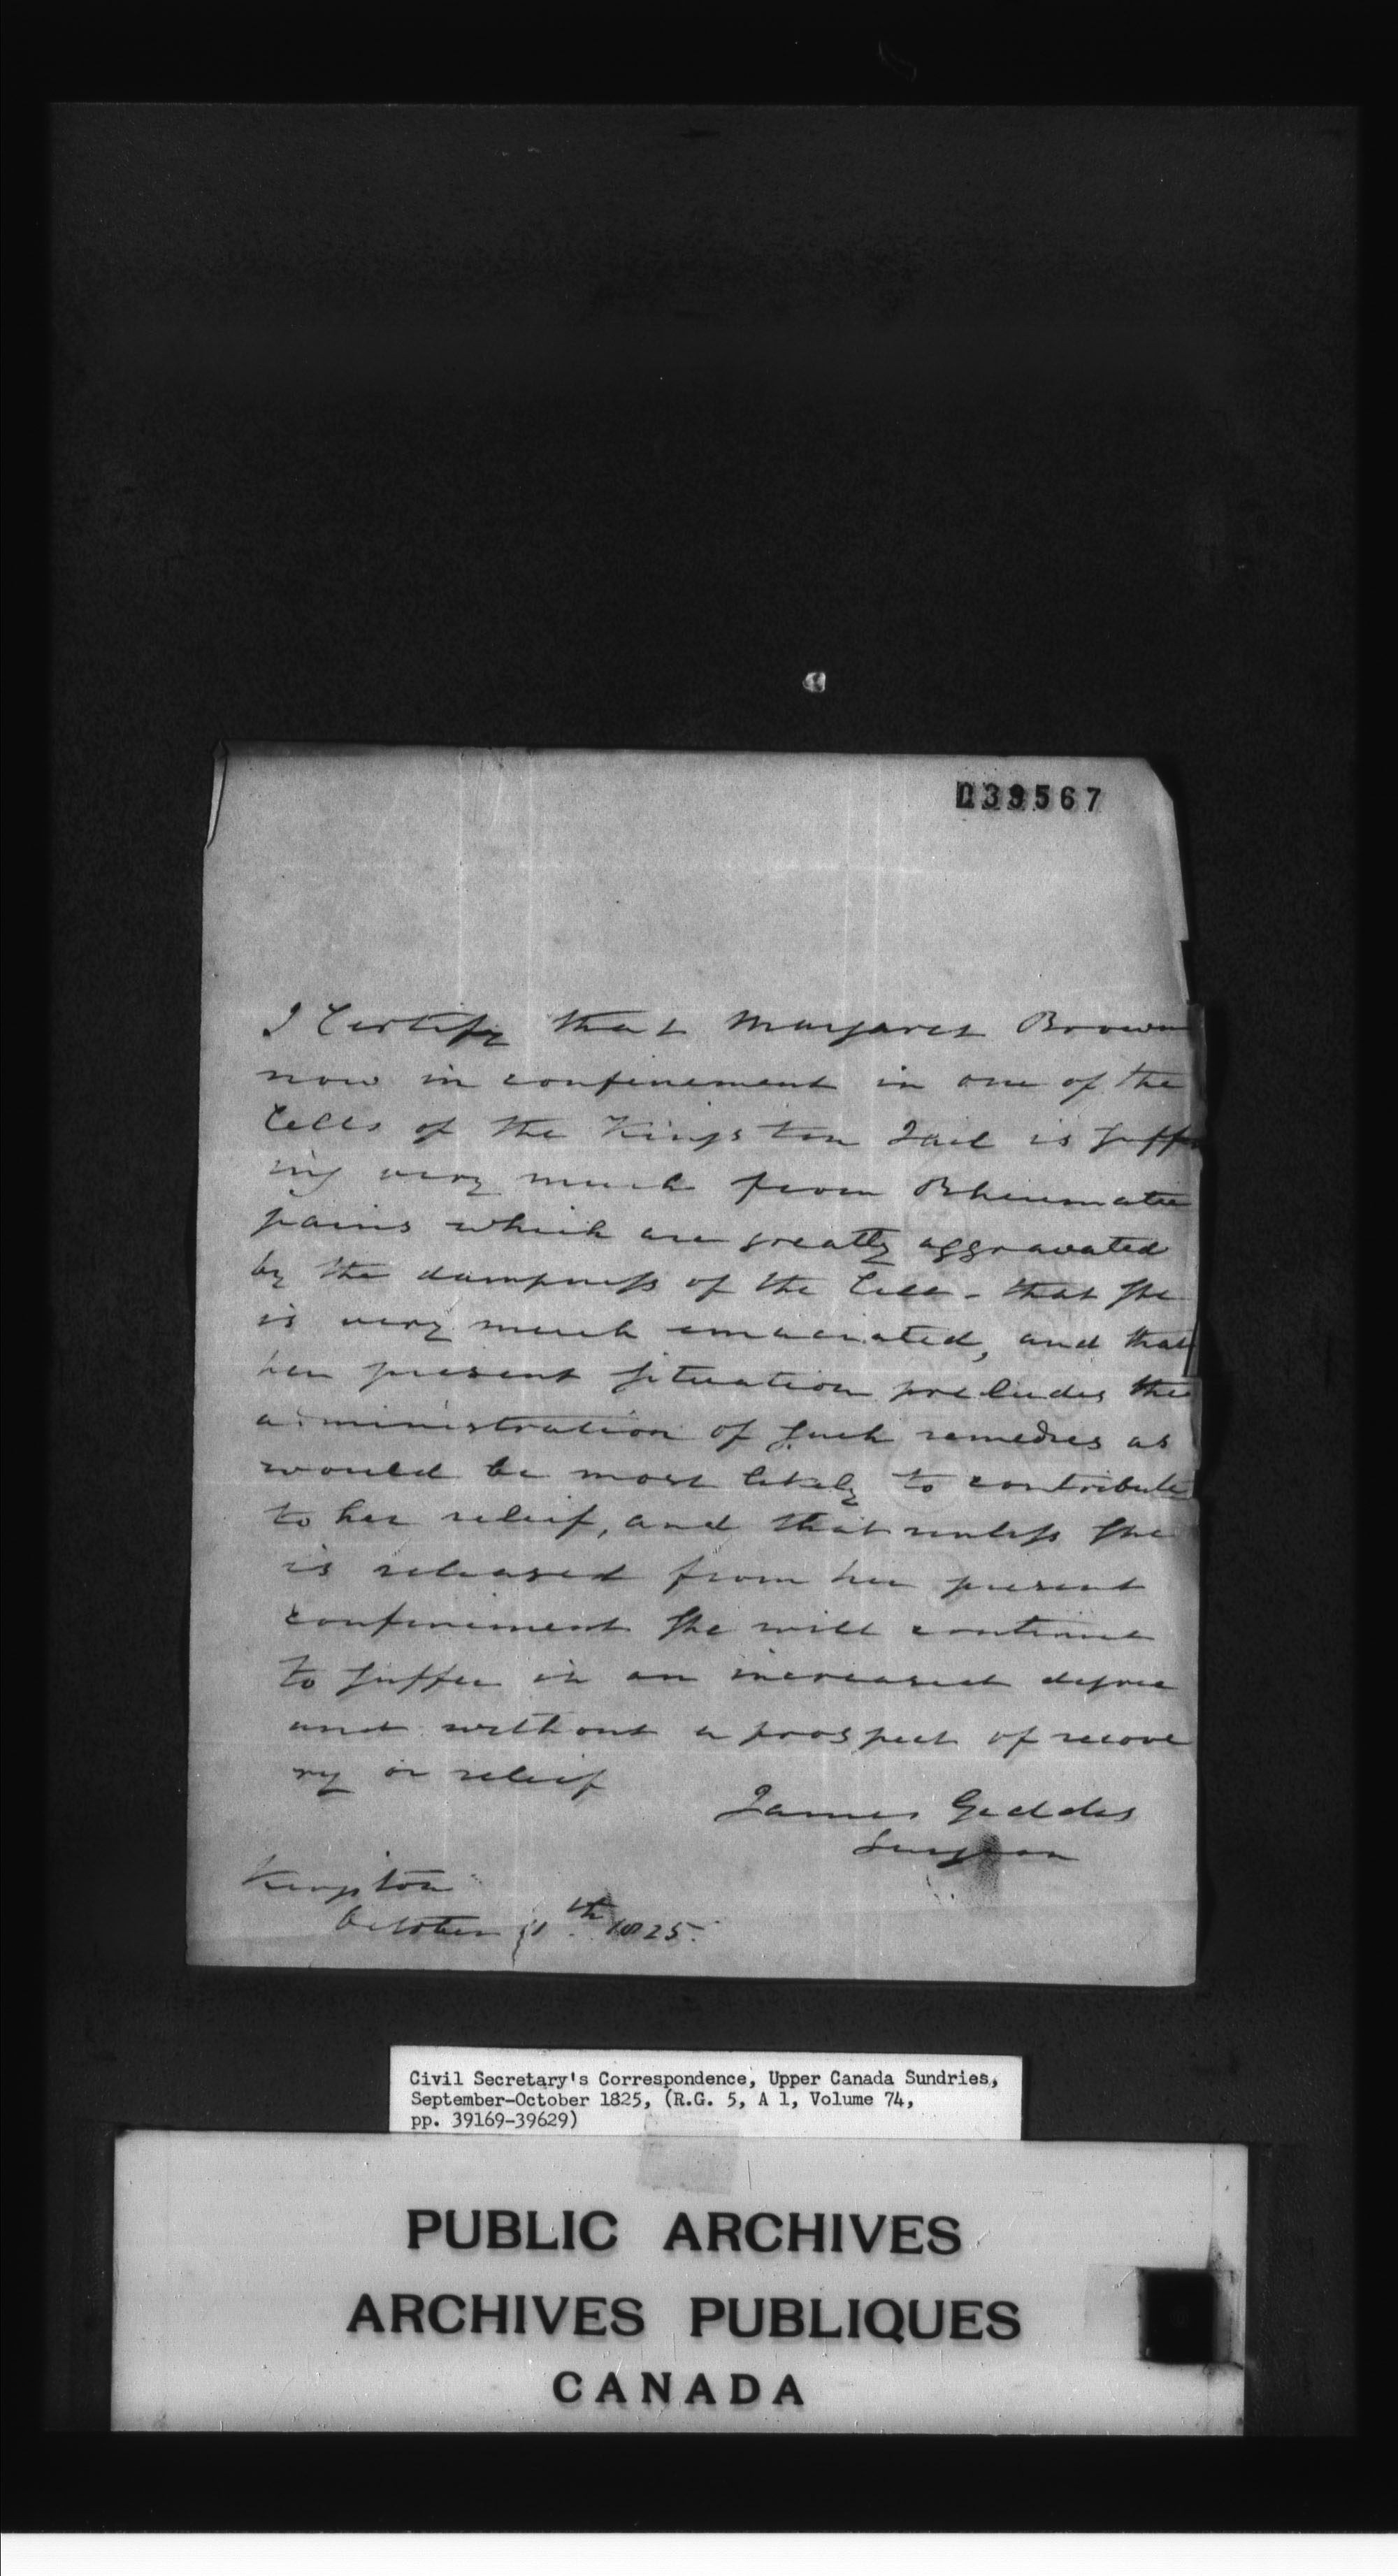 039567
I Certify that Margaret Brown
now in confinement in one of the
Cells of the Kingston Jail is suffer
ing very much from Rheumatic
pains which are greatly aggravated
by the dampness of the Cell - that she
is very much emaciated, and that
her present situation precludes the
administration of such remedies as
would be most likely to contribute
to her relief, and that unless she
is released from her present
confinement she will continue
to suffer in an increased degree
and without a prospect of recove
ry or relief
James Geddes
Surgeon
Kingston
October 1825.
Civil Secretary's Correspondence, Upper Canada Sundries,
September-October 1825, (R.G. 5, A 1, Volume 74,
pp. 39169-39629)
PUBLIC ARCHIVES
ARCHIVES PUBLIQUES
CANADA